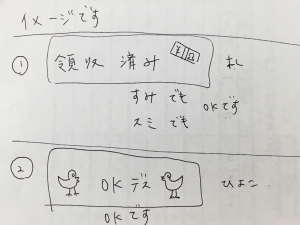 イメージです
① 領収 済み 札
すみ でも
スミ でも
OKです
② OK デス ひよこ
OKです